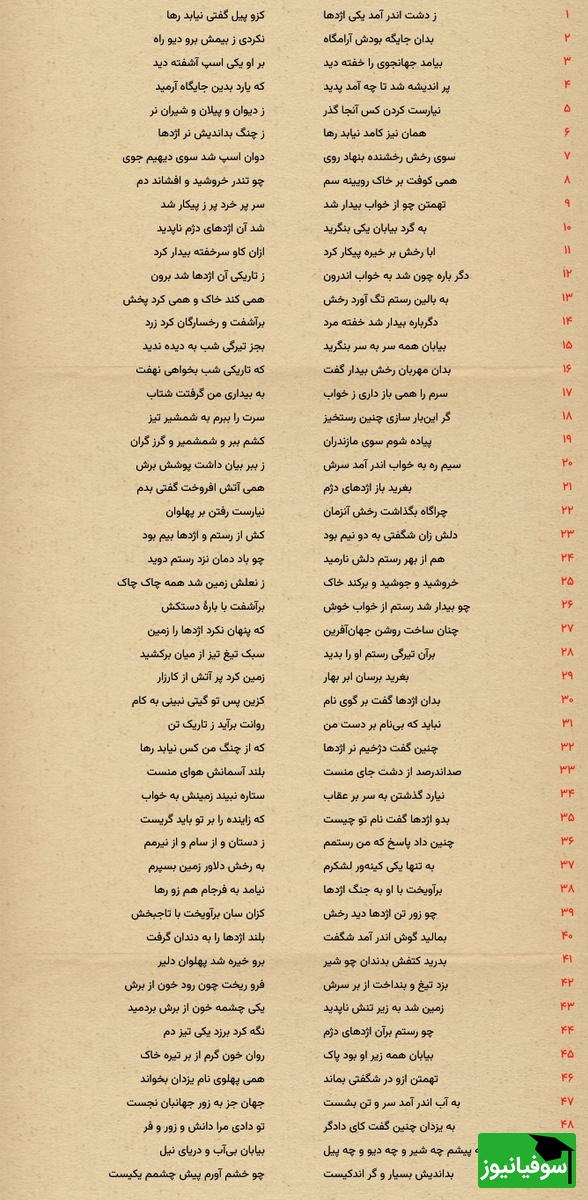 ۱ ز دشت اندر آمد یکی اژدها کزو پیل گفتی نیابد رها
۲ بدان جایگه بودش آرامگاه نکردی ز بیمش برو دیو راه
۳ بیامد جهانجوی را خفته دید بر او یکی اسپ آشفته دید
۴ پر اندیشه شد تا چه آمد پدید که یارد بدین جایگاه آرمید
۵ نیارست کردن کس آنجا گذر ز دیوان و پیلان و شیران نر
۶ همان نیز کامد نیابد رها ز چنگ بداندیش نر اژدها
۷ سوی رخش رخشنده بنهاد روی دوان اسپ شد سوی دیهیم جوی
۸ همی کوفت بر خاک رویینه سم چو تندر خروشید و افشاند دم
۹ تهمتن چو از خواب بیدار شد سر پر خرد پر ز پیکار شد
۱۰ به گرد بیابان یکی بنگرید شد آن اژدهای دژم ناپدید
۱۱ ابا رخش بر خیره پیکار کرد ازان کاو سرخفته بیدار کرد
۱۲ دگر باره چون شد به خواب اندرون ز تاریکی آن اژدها شد برون
۱۳ به بالین رستم تگ آورد رخش همی کند خاک و همی کرد پخش
۱۴ دگرباره بیدار شد خفته مرد برآشفت و رخسارگان کرد زرد
۱۵ بیابان همه سر به سر بنگرید بجز تیرگی شب به دیده ندید
۱۶ بدان مهربان رخش بیدار گفت که تاریکی شب بخواهی نهفت
۱۷ سرم را همی باز داری ز خواب به بیداری من گرفتت شتاب
۱۸ گر این‌بار سازی چنین رستخیز سرت را ببرم به شمشیر تیز
۱۹ پیاده شوم سوی مازندران کشم ببر و شمشمیر و گرز گران
۲۰ سیم ره به خواب اندر آمد سرش ز ببر بیان داشت پوشش برش
۲۱ بغرید باز اژدهای دژم همی آتش افروخت گفتی بدم
۲۲ چراگاه بگذاشت رخش آنزمان نیارست رفتن بر پهلوان
۲۳ دلش زان شگفتی به دو نیم بود کش از رستم و اژدها بیم بود
۲۴ هم از بهر رستم دلش نارمید چو باد دمان نزد رستم دوید
۲۵ خروشید و جوشید و برکند خاک ز نعلش زمین شد همه چاک چاک
۲۶ چو بیدار شد رستم از خواب خوش برآشفت با بارهٔ دستکش
۲۷ چنان ساخت روشن جهان‌آفرین که پنهان نکرد اژدها را زمین
۲۸ برآن تیرگی رستم او را بدید سبک تیغ تیز از میان برکشید
۲۹ بغرید برسان ابر بهار زمین کرد پر آتش از کارزار
۳۰ بدان اژدها گفت بر گوی نام کزین پس تو گیتی نبینی به کام
۳۱ نباید که بی‌نام بر دست من روانت برآید ز تاریک تن
۳۲ چنین گفت دژخیم نر اژدها که از چنگ من کس نیابد رها
۳۳ صداندرصد از دشت جای منست بلند آسمانش هوای منست
۳۴ نیارد گذشتن به سر بر عقاب ستاره نبیند زمینش به خواب
۳۵ بدو اژدها گفت نام تو چیست که زاینده را بر تو باید گریست
۳۶ چنین داد پاسخ که من رستمم ز دستان و از سام و از نیرمم
۳۷ به تنها یکی کینه‌ور لشکرم به رخش دلاور زمین بسپرم
۳۸ برآویخت با او به جنگ اژدها نیامد به فرجام هم زو رها
۳۹ چو زور تن اژدها دید رخش کزان سان برآویخت با تاجبخش
۴۰ بمالید گوش اندر آمد شگفت بلند اژدها را به دندان گرفت
۴۱ بدرید کتفش بدندان چو شیر برو خیره شد پهلوان دلیر
۴۲ بزد تیغ و بنداخت از بر سرش فرو ریخت چون رود خون از برش
۴۳ زمین شد به زیر تنش ناپدید یکی چشمه خون از برش بردمید
۴۴ چو رستم برآن اژدهای دژم نگه کرد برزد یکی تیز دم
۴۵ بیابان همه زیر او بود پاک روان خون گرم از بر تیره خاک
۴۶ تهمتن ازو در شگفتی بماند همی پهلوی نام یزدان بخواند
۴۷ به آب اندر آمد سر و تن بشست جهان جز به زور جهانبان نجست
۴۸ به یزدان چنین گفت کای دادگر تو دادی مرا دانش و زور و فر
پیشم چه شیر و چه دیو و چه پیل بیابان بی‌آب و دریای نیل
بداندیش بسیار و گر اندکیست چو خشم آورم پیش چشمم یکیست
سوفیانیوز